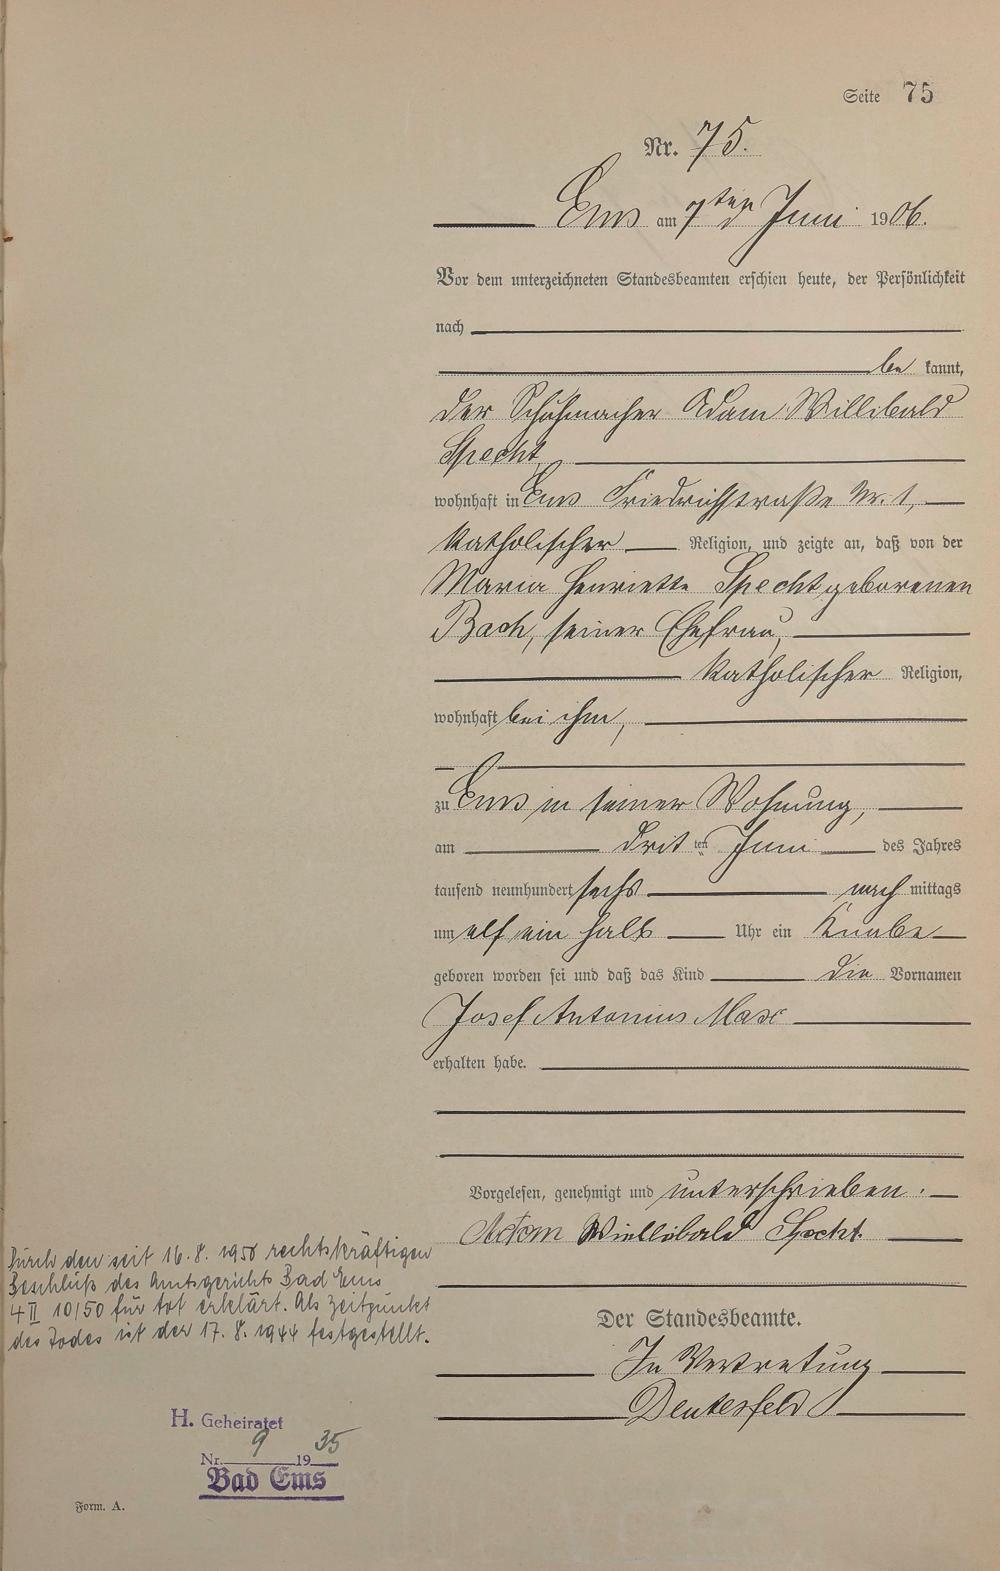 Seite 75
Nr. 75.
Ems am 7ten Juni 1906.
Vor dem unterzeichneten Standesbeamten erschien heute, der Persönlichkeit
nach
be kannt,
der Schuhmacher Adam Willibald
Specht
wohnhaft in Ems Friedrichstraße Nr. 1,
katholischer Religion, und zeigte an, daß von der
Maria Henriette Specht geborenen
Bach, seiner Ehefrau,
katholischer Religion,
wohnhaft bei ihm,
zu Ems in seiner Wohnung,
am drit ten Juni des Jahres
tausend neunhundert sechs nach mittags
um elf ein halb Uhr ein Knabe
geboren worden sei und daß das Kind die Vornamen
Josef Antonius Max
erhalten habe.
Vorgelesen, genehmigt und unterschrieben.
Adam Willibald Specht
Der Standesbeamte.
In Vertretung
Durch den seit 16.8.1950 rechtskräftigen
Beschluß des Amtsgerichts Bad Ems
4 II 10/50 für tot erklärt. Als Zeitpunkt
des Todes ist der 17.8.1944 festgestellt.
H. Geheiratet
Nr. 9 1935
Bad Ems
Form. A.